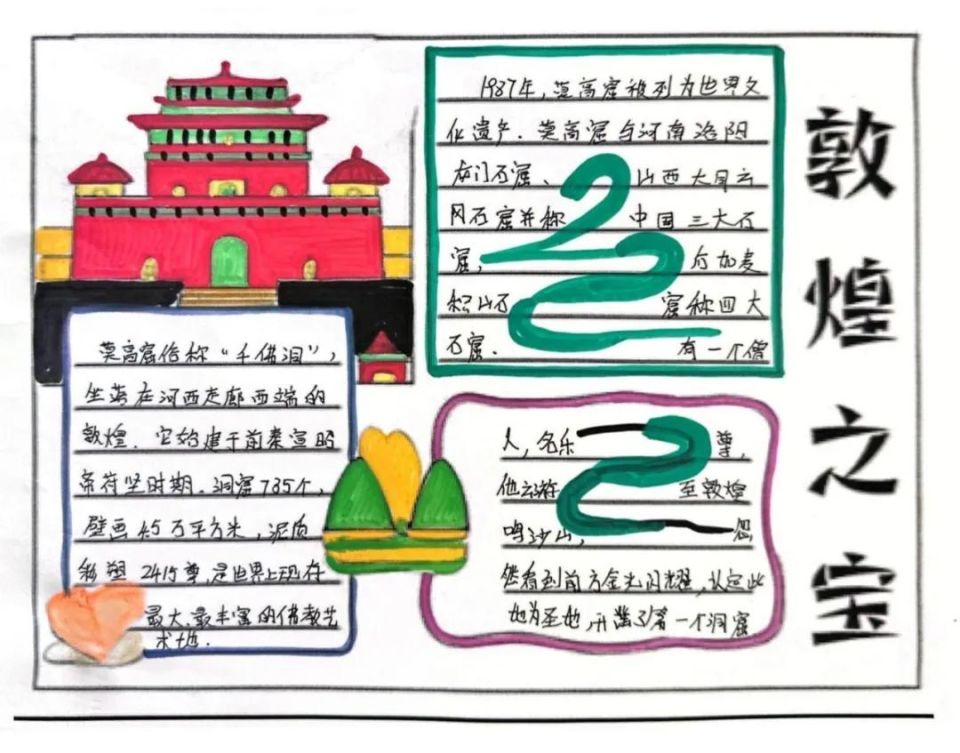 敦煌之宝
1987年，莫高窟被列为世界文
化遗产。莫高窟与河南洛阳
龙门石窟、山西大同云
冈石窟并称中国三大石
窟，后加麦
积山石窟称四大
石窟。有一个僧
人，名乐尊，
他云游至敦煌
鸣沙山，忽
然看到前方金光闪耀，认定此
地为圣地，开凿了第一个洞窟
莫高窟俗称“千佛洞”，
坐落在河西走廊西端的
敦煌。它始建于前秦宣昭
帝苻坚时期。洞窟735个，
壁画4.5万平方米，泥质
彩塑2415尊，是世界上现存
最大、最丰富的佛教艺
术地.